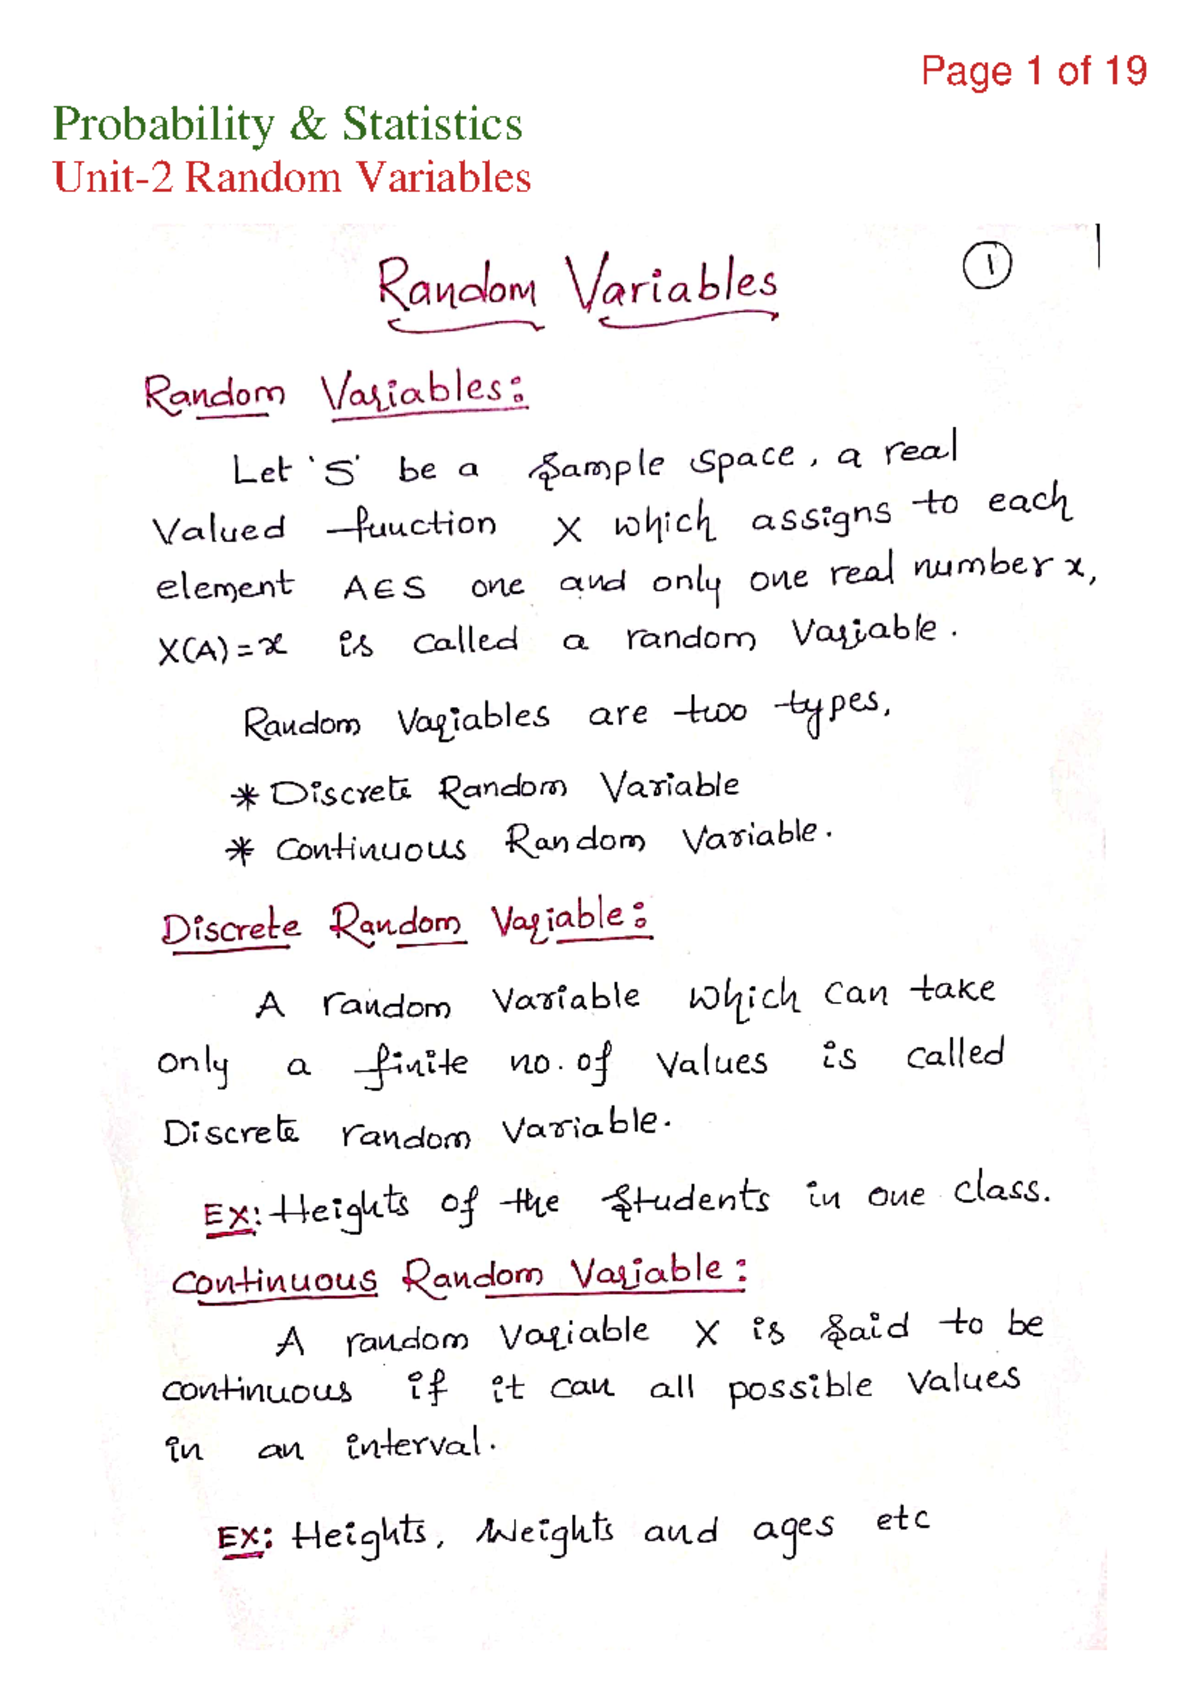 Page 1 of 19
Probability & Statistics
Unit-2 Random Variables
Random Variables
1
Random Variables:
Let 'S' be a Sample space, a real
Valued function X which assigns to each
element A∈S one and only one real number x,
X(A)=x is called a random Variable.
Random Variables are two types,
* Discrete Random Variable
* Continuous Random Variable.
Discrete Random Variable:
A random Variable which can take
only a finite no. of Values is called
Discrete random Variable.
EX: Heights of the Students in one class.
Continuous Random Variable:
A random Variable X is Said to be
continuous if it can all possible values
in an interval.
EX: Heights, Weights and ages etc